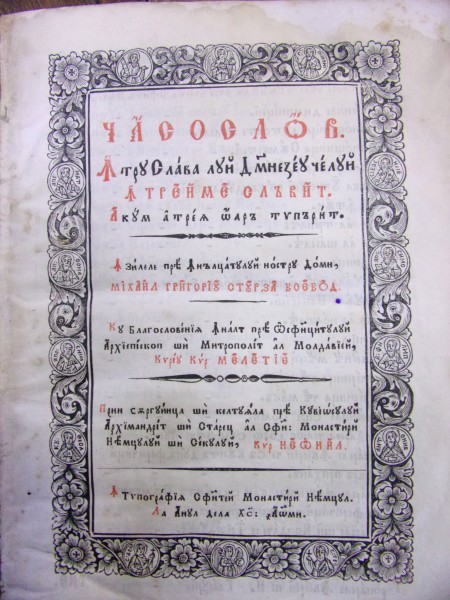 ЧАСОСЛОВ.
Ꙟтру Слава луй Дмнезеꙋ челуй
ꙟ трейме слъвит.
Акум а трея ѡаръ типърит.
Ꙟ зилеле прѣ ꙟнълцатулуй ностру Домн,
МІХАИЛ ГРИГОРІЙ СТУРЗА ВОЕВОД.
Ку Благословенія ꙟналт прѣ Ѡсфинцитулуй
Архіепископ ши Митрополит ал Молдавіей,
КУРІУ КУР МЕЛЕТІЕ
Прин сѫргуинца ши келтуяла прѣ Кувіосулуй
Архимандрит ши Старец ал Сфи: Монастири
Нѣмцулуй ши Секулуй, КУР НЕОНИЛ.
Ꙟ Тупографіа Сфинтей Монастири Нѣмцул.
Ла Анул дела ХС: